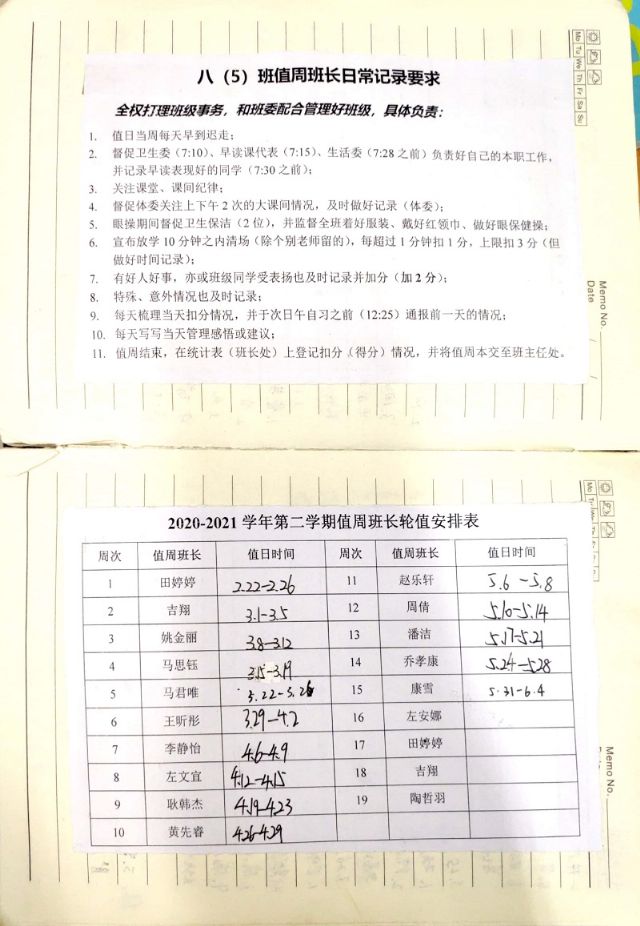 Mo Tu We Th Fr Sa Su
Memo No.
Date
八（5）班值周班长日常记录要求
全权打理班级事务，和班委配合管理好班级，具体负责：
1. 值日当周每天早到迟走；
2. 督促卫生委（7:10）、早读课代表（7:15）、生活委（7:28 之前）负责好自己的本职工作，
并记录早读表现好的同学（7:30 之前）；
3. 关注课堂、课间纪律；
4. 督促体委关注上下午 2 次的大课间情况，及时做好记录（体委）；
5. 眼操期间督促卫生保洁（2 位），并监督全班着好服装、戴好红领巾、做好眼保健操；
6. 宣布放学 10 分钟之内清场（除个别老师留的），每超过 1 分钟扣 1 分，上限扣 3 分（但
做好时间记录）；
7. 有好人好事，亦或班级同学受表扬也及时记录并加分（加 2 分）；
8. 特殊、意外情况也及时记录；
9. 每天梳理当天扣分情况，并于次日午自习之前（12:25）通报前一天的情况；
10. 每天写写当天管理感悟或建议；
11. 值周结束，在统计表（班长处）上登记扣分（得分）情况，并将值周本交至班主任处。
Memo No.
2020-2021 学年第二学期值周班长轮值安排表
周次 值周班长 值日时间 周次 值周班长 值日时间
1 田婷婷 2.22-2.26 11 赵乐轩 5.6-5.8
2 吉翔 3.1-3.5 12 周倩 5.10-5.14
3 姚金丽 3.8-3.12 13 潘洁 5.17-5.21
4 马思钰 3.15-3.19 14 乔孝康 5.24-5.28
5 马君唯 3.22-3.26 15 康雪 5.31-6.4
6 王昕彤 3.29-4.2 16 左安娜
7 李静怡 4.6-4.9 17 田婷婷
8 左文宜 4.12-4.15 18 吉翔
9 耿韩杰 4.19-4.23 19 陶哲羽
10 黄先睿 4.26-4.29